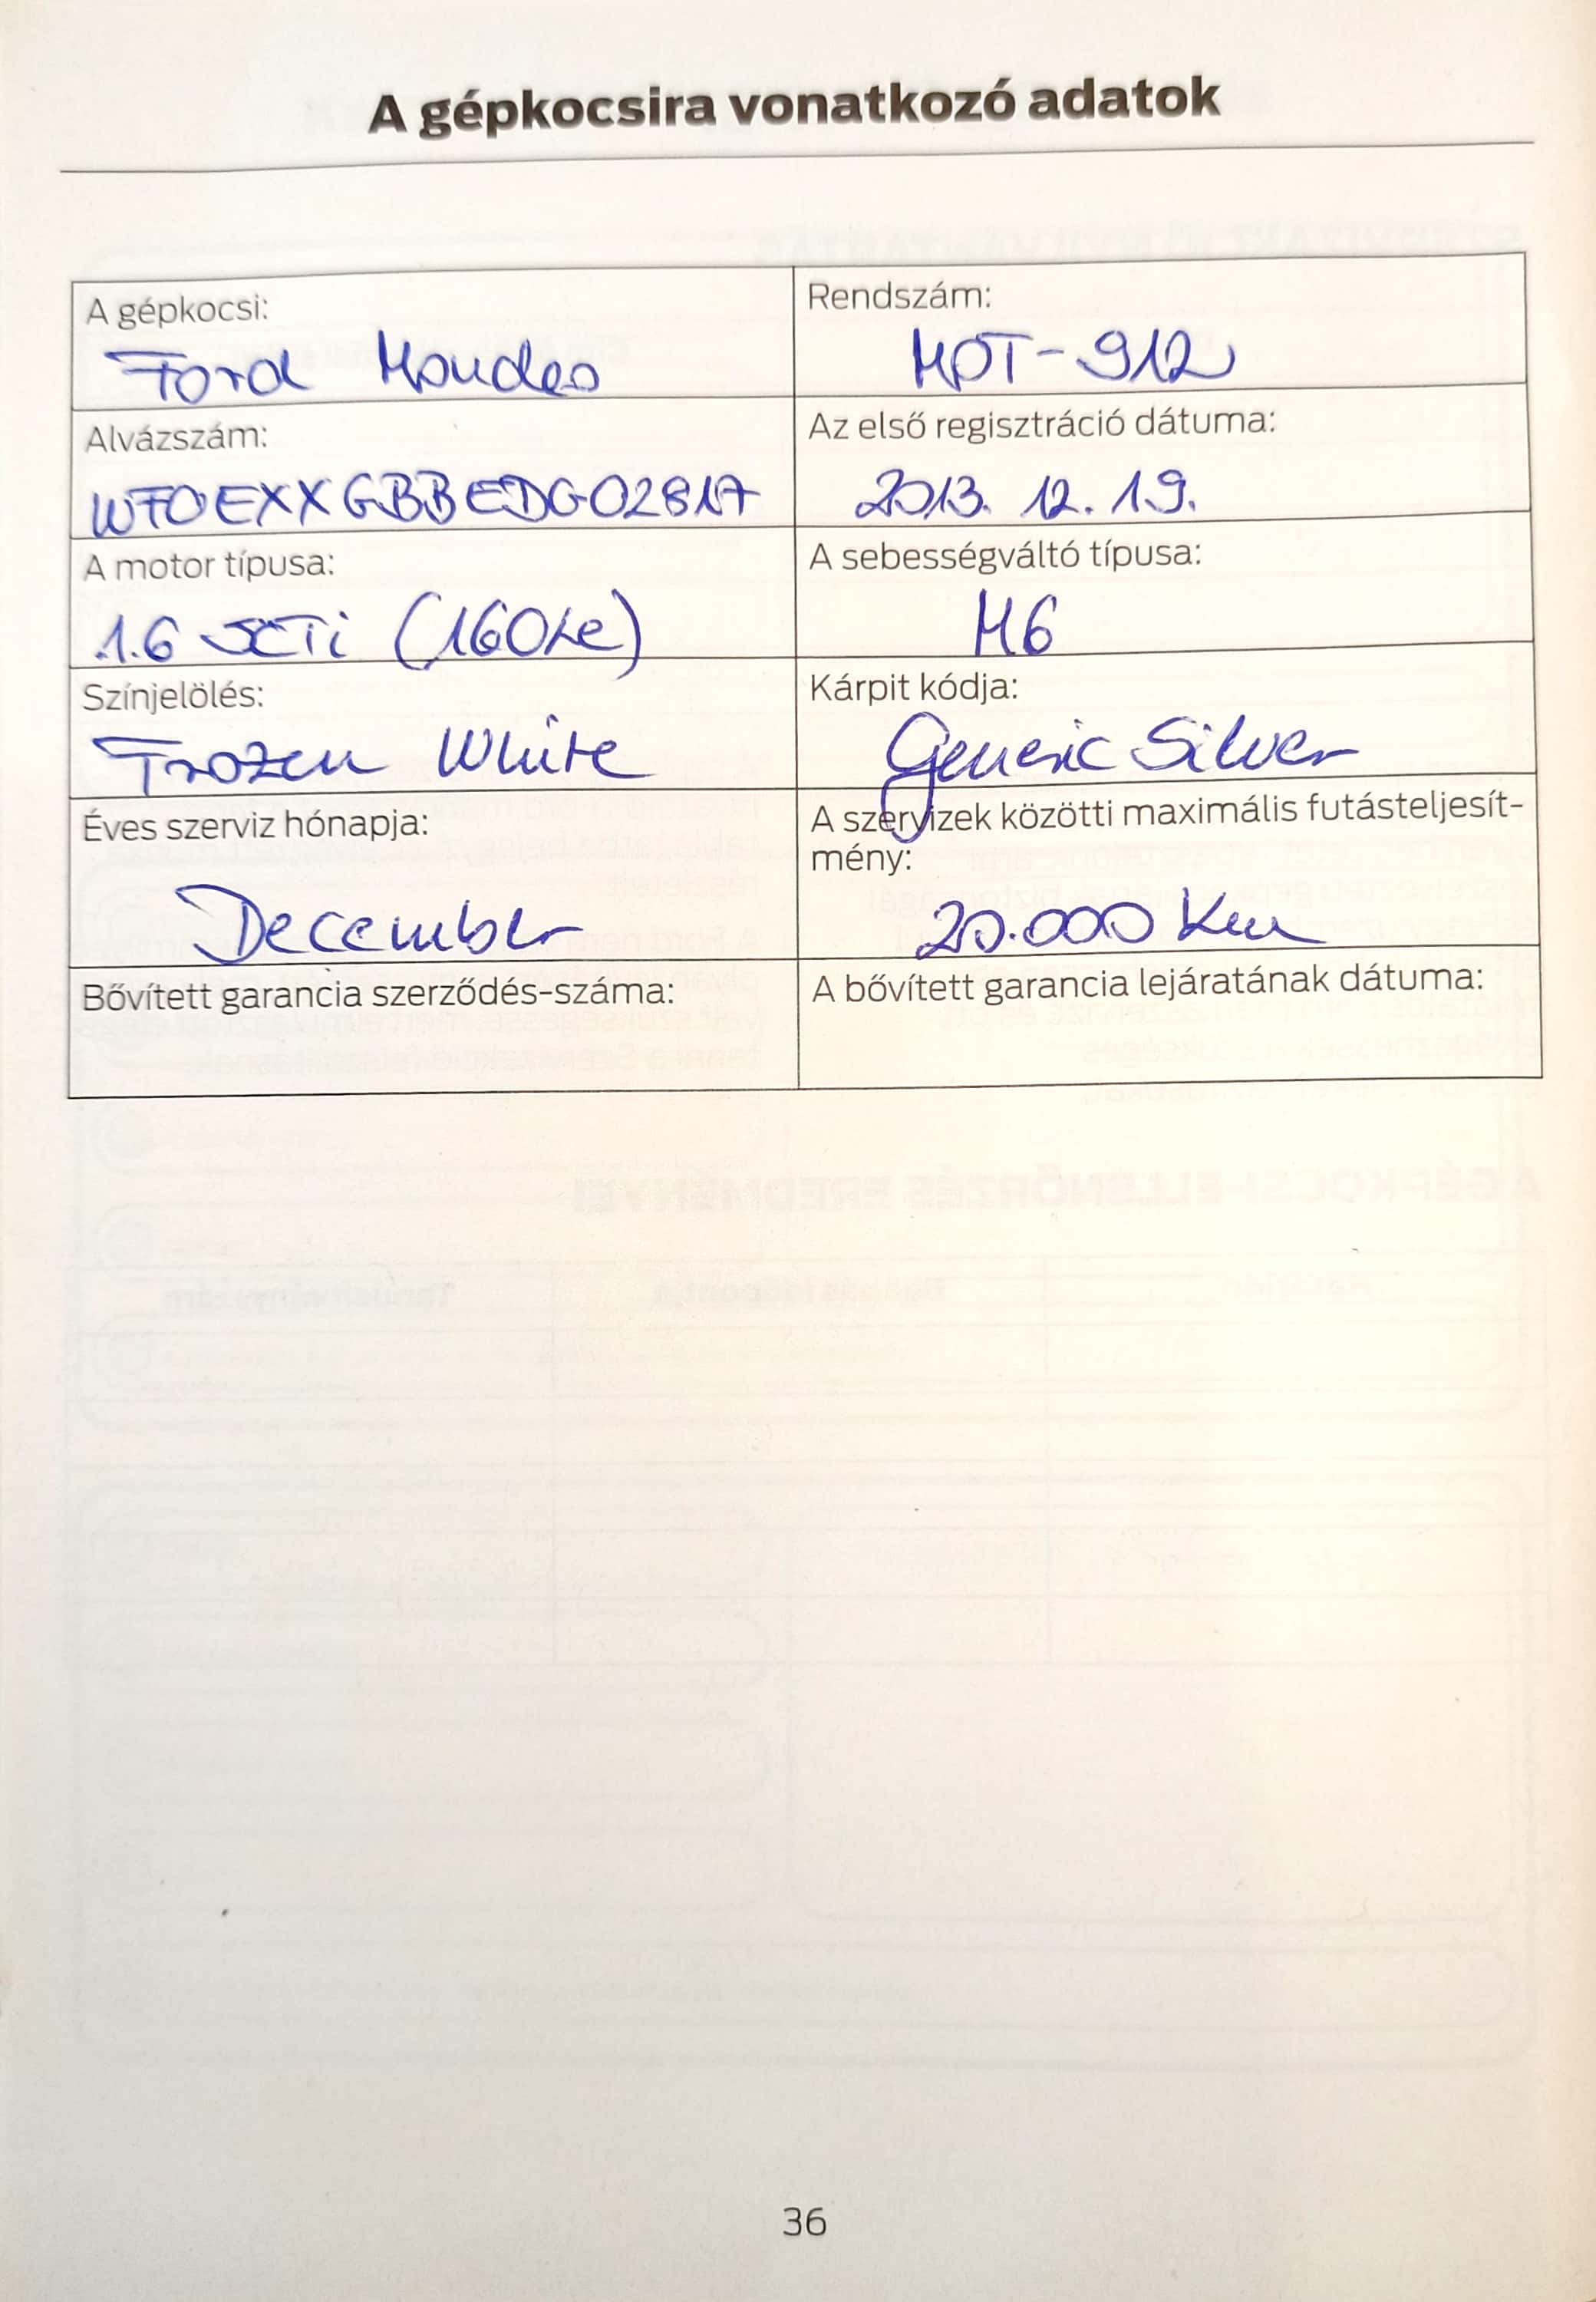 A gépkocsira vonatkozó adatok
A gépkocsi:
Ford Mondeo
Rendszám:
MOT-912
Alvázszám:
WF0EXXGBBEDG02817
Az első regisztráció dátuma:
2013. 12. 19.
A motor típusa:
1.6 SCTi (160Le)
A sebességváltó típusa:
M6
Színjelölés:
Frozen White
Kárpit kódja:
Generic Silver
Éves szerviz hónapja:
December
A szervizek közötti maximális futásteljesít-
mény:
20.000 Km
Bővített garancia szerződés-száma:
A bővített garancia lejáratának dátuma:
36